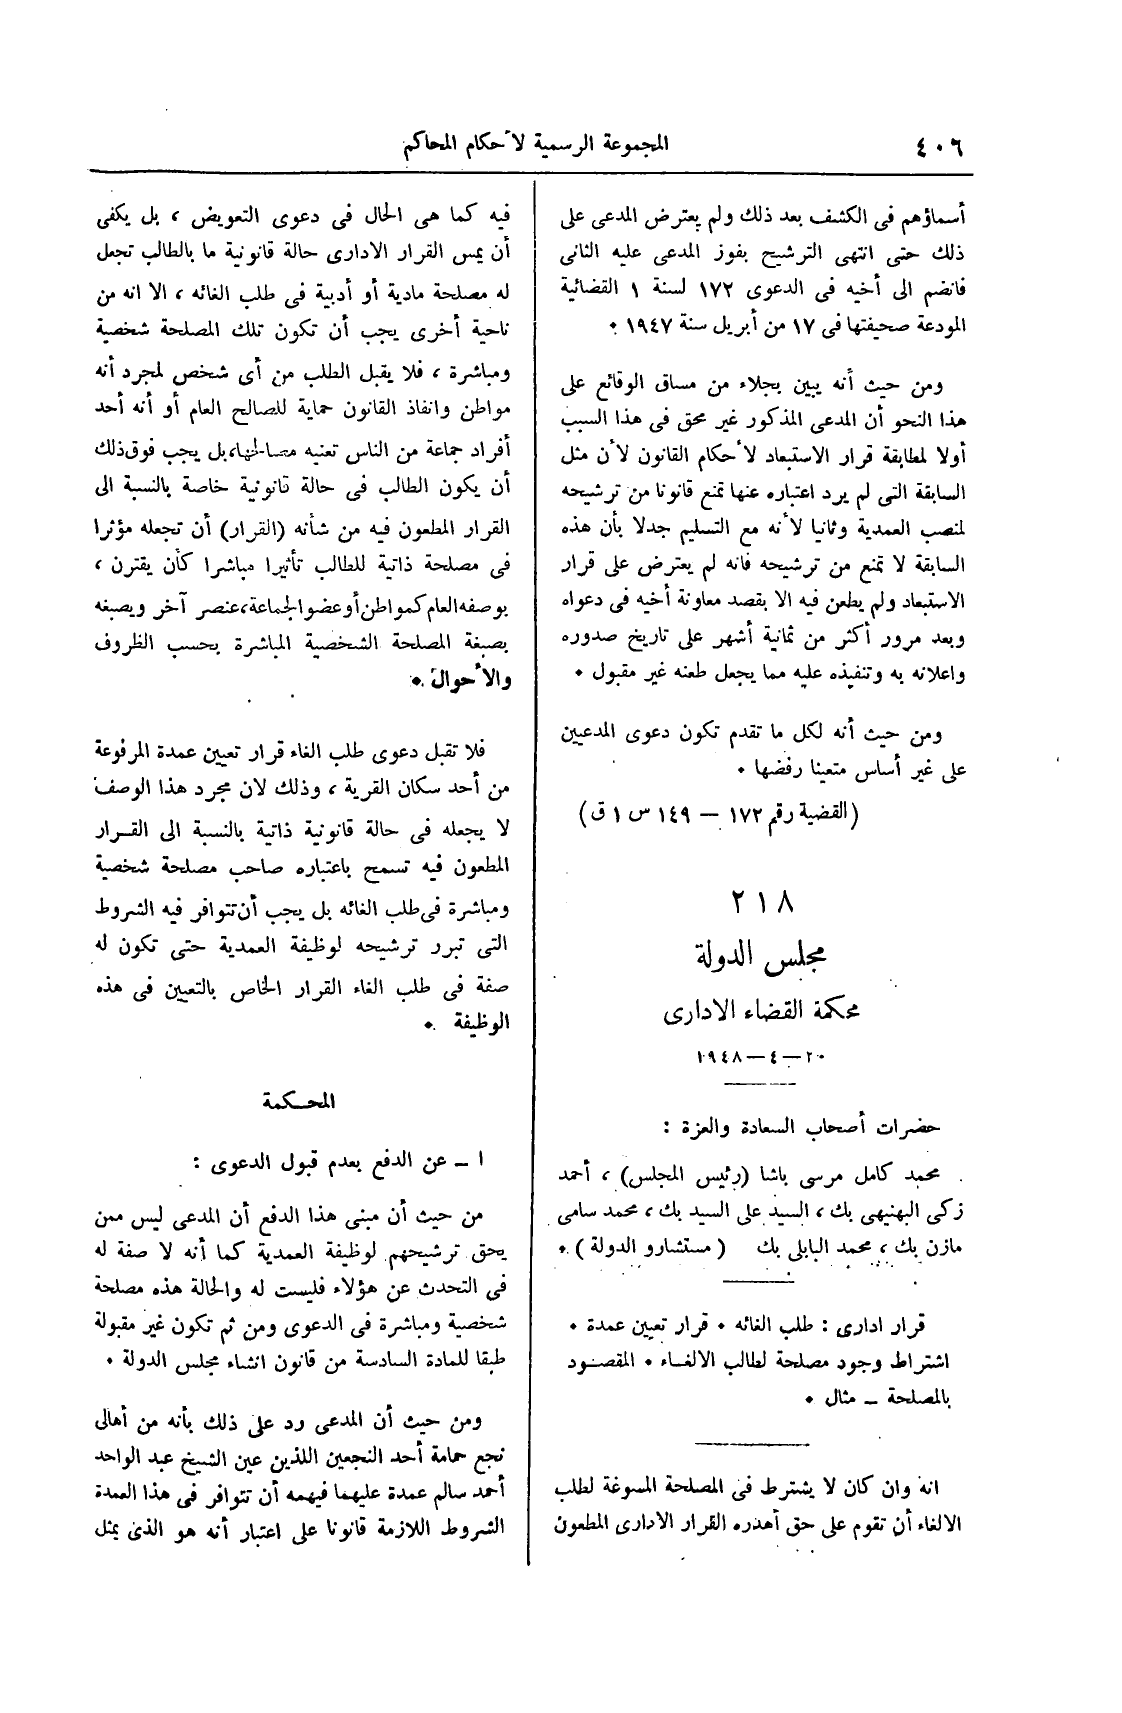 ٤٠٦
المجموعة الرسمية لأحكام المحاكم
أسماؤهم فى الكشف بعد ذلك ولم يعترض المدعى على
ذلك حتى انتهى الترشيح بفوز المدعى عليه الثانى
فانضم الى أخيه فى الدعوى ١٧٢ لسنة ١ القضائية
المودعة صحيفتها فى ١٧ من أبريل سنة ١٩٤٧ .
ومن حيث أنه يبين بجلاء من مساق الوقائع على
هذا النحو أن المدعى المذكور غير محق فى هذا السبب
أولا لمطابقة قرار الاستبعاد لأحكام القانون لأن مثل
السابقة التى لم يرد اعتباره عنها تمنع قانونا من ترشيحه
لمنصب العمدية وثانيا لأنه مع التسليم جدلا بأن هذه
السابقة لا تمنع من ترشيحه فانه لم يعترض على قرار
الاستبعاد ولم يطعن فيه الا بقصد معاونة أخيه فى دعواه
وبعد مرور أكثر من ثمانية أشهر على تاريخ صدوره
واعلانه به وتنفيذه عليه مما يجعل طعنه غير مقبول .
ومن حيث أنه لكل ما تقدم تكون دعوى المدعيين
على غير أساس متعينا رفضها .
(القضية رقم ١٧٢ – ١٤٩ س ١ ق)
٢١٨
مجلس الدولة
محكمة القضاء الادارى
٢٠–٤–١٩٤٨
حضرات أصحاب السعادة والعزة :
محمد كامل مرسى باشا (رئيس المجلس) ، أحمد
زكى البهنيهى بك ، السيد على السيد بك ، محمد سامى
مازن بك ، محمد البابلى بك (مستشارو الدولة) .
قرار ادارى : طلب الغائه . قرار تعيين عمدة .
اشتراط وجود مصلحة لطالب الالغاء . المقصود
بالمصلحة – مثال .
انه وان كان لا يشترط فى المصلحة المسوغة لطلب
الالغاء أن تقوم على حق أهدره القرار الادارى المطعون
فيه كما هى الحال فى دعوى التعويض ، بل يكفى
أن يمس القرار الادارى حالة قانونية ما بالطالب تجعل
له مصلحة مادية أو أدبية فى طلب الغائه ، الا انه من
ناحية أخرى يجب أن تكون تلك المصلحة شخصية
ومباشرة ، فلا يقبل الطلب من أى شخص لمجرد أنه
مواطن وانفاذ القانون حماية للصالح العام أو أنه أحد
أفراد جماعة من الناس تعنيه مصالحها، بل يجب فوق ذلك
أن يكون الطالب فى حالة قانونية خاصة بالنسبة الى
القرار المطعون فيه من شأنه (القرار) أن تجعله مؤثرا
فى مصلحة ذاتية للطالب تأثيرا مباشرا كأن يقترن ،
بوصفه العام كمواطن أو عضو الجماعة، عنصر آخر ويصبغه
بصبغة المصلحة الشخصية المباشرة بحسب الظروف
والأحوال .
فلا تقبل دعوى طلب الغاء قرار تعيين عمدة المرفوعة
من أحد سكان القرية ، وذلك لان مجرد هذا الوصف
لا يجعله فى حالة قانونية ذاتية بالنسبة الى القرار
المطعون فيه تسمح باعتباره صاحب مصلحة شخصية
ومباشرة فى طلب الغائه بل يجب أن تتوافر فيه الشروط
التى تبرر ترشيحه لوظيفة العمدية حتى تكون له
صفة فى طلب الغاء القرار الخاص بالتعيين فى هذه
الوظيفة .
المحكمة
١ – عن الدفع بعدم قبول الدعوى :
من حيث أن مبنى هذا الدفع أن المدعى ليس ممن
يحق ترشيحهم لوظيفة العمدية كما أنه لا صفة له
فى التحدث عن هؤلاء فليست له والحالة هذه مصلحة
شخصية ومباشرة فى الدعوى ومن ثم تكون غير مقبولة
طبقا للمادة السادسة من قانون انشاء مجلس الدولة .
ومن حيث أن المدعى رد على ذلك بأنه من أهالى
نجع حمامة أحد النجعين اللذين عين الشيخ عبد الواحد
أحمد سالم عمدة عليهما فيهمه أن تتوافر فى هذا العمدة
الشروط اللازمة قانونا على اعتبار أنه هو الذى يمثل